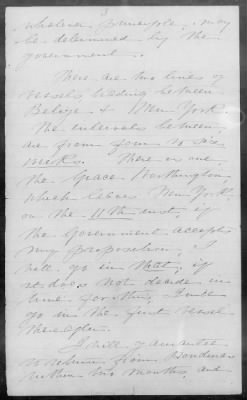 3
whatever principle, may
be determined by the
government.
There are two lines of
vessels trading between
Belize & New York.
The intervals between
are from four to six
weeks. There is one,
the Grace Worthington
which leaves New York
on the 11th inst, if
the Government accepts
my proposition, I
will go in that; if
it does not decide in
time for this, I will
go in the first vessel
thereafter.
I will guarantee
to return from Honduras
within two months, and